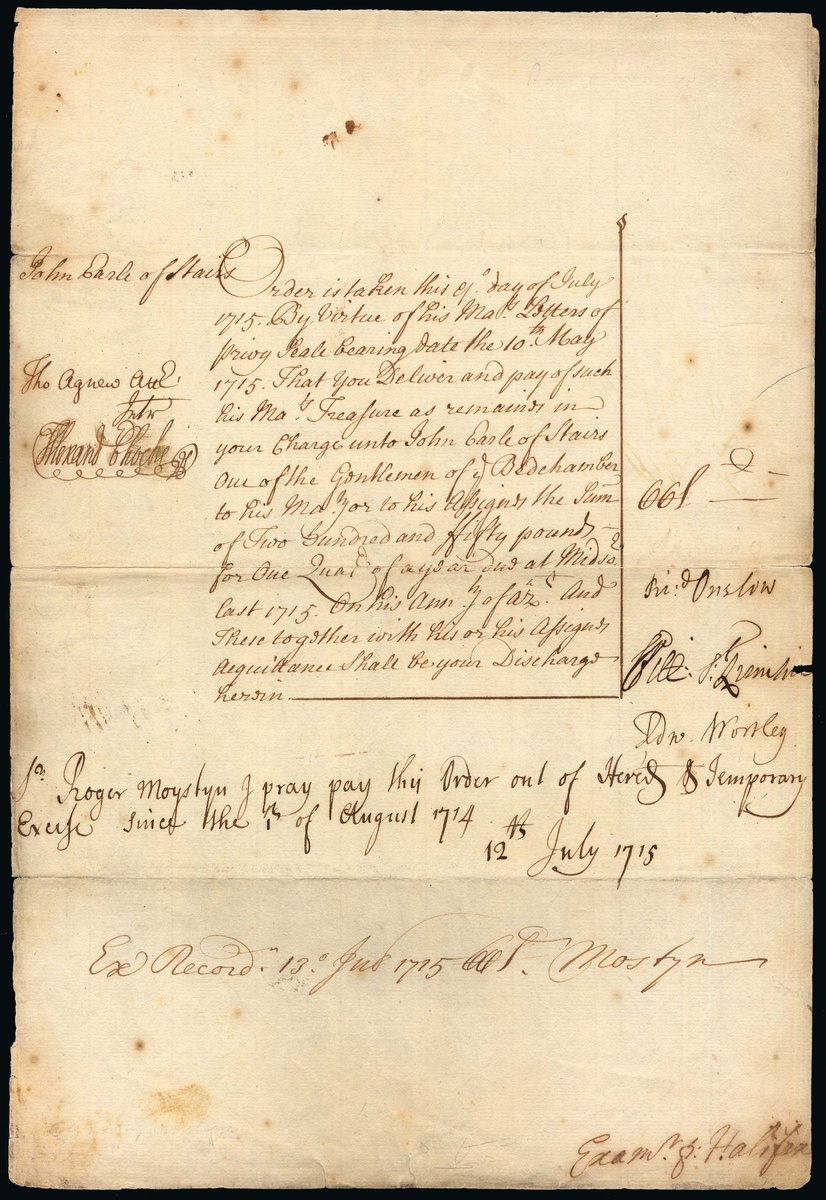 John Earle of Stairs
Order is taken this 9º day of July
1715. By Virtue of his Ma.ts Letters of
privy Seale bearing date the 10th May
1715. That You Deliver and pay of such
his Ma.ts Treasure as remaines in
your Charge unto John Earle of Stairs
One of the Gentlemen of ye Bedchamber
to his Ma.ty or to his Assignes the Sum
of Two hundred and ffifty pounds
for One Quar of a year due at Midso
last 1715. On his Ann.ty of And
These together with his or his Assignes
Acquittance Shall be your Discharge
herein
Tho Agnew
Ri:d Onslow
Will: St Quintin
Edw. Wortley
Sr. Roger Moystyn I pray pay this Order out of Hered & Temporary
Excise Since the 1st of August 1714
12th July 1715
Ex Record.r 13º 1715 Mostyn
Exam.r p: Halifax